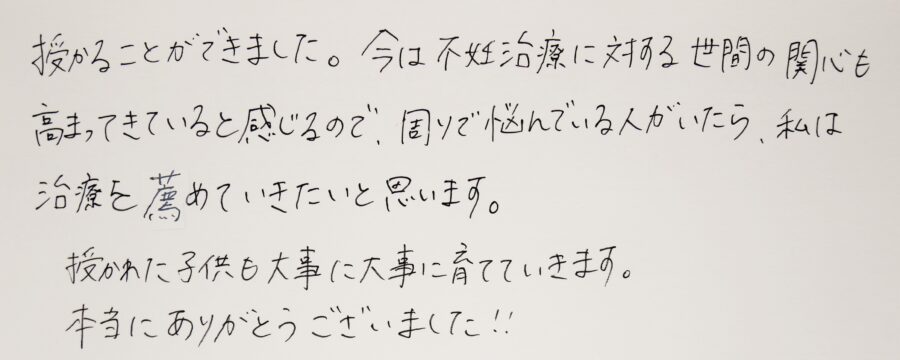 授かることができました。今は不妊治療に対する世間の関心も
高まってきていると感じるので、周りで悩んでいる人がいたら、私は
治療を薦めていきたいと思います。
授かれた子供も大事に大事に育てていきます。
本当にありがとうございました!!